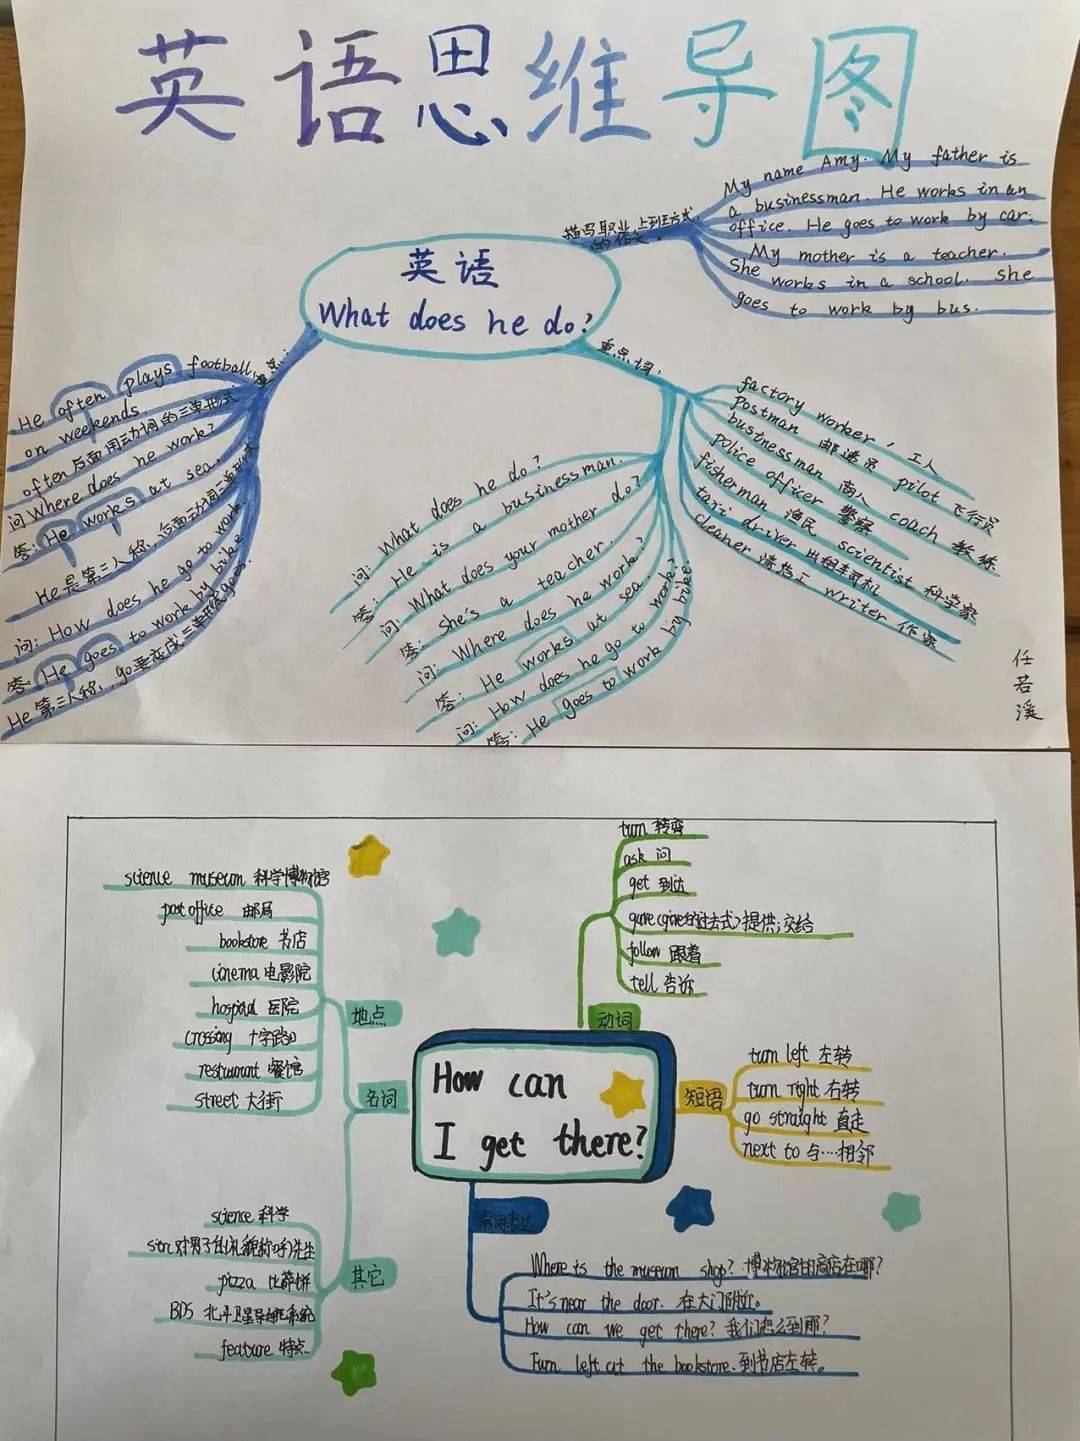 英语思维导图
英语
What does he do?
描写职业,上班方式,
的作文。
My name Amy. My father is
a businessman. He works in an
office. He goes to work by car.
My mother is a teacher.
She works in a school. She
goes to work by bus.
重点词:
factory worker, 工人
postman 邮递员 pilot 飞行员
businessman 商人 coach 教练
police officer 警察
fisherman 渔民 scientist 科学家
taxi driver 出租车司机
cleaner 清洁工 writer 作家
问: What does he do?
答: He is a businessman.
问: What does your mother do?
答: She's a teacher.
问: Where does he work?
答: He works at sea.
问: How does he go to work?
答: He goes to work by bike.
He often plays football
on weekends.
often后面用动词的三单形式
问Where does he work?
答: He works at sea.
He是第三人称,后面动词三单形式
问: How does he go to work.
答: He goes to work by bike
He第三人称,go要变成三单形式goes.
任若溪
How can
I get there?
动词
turn 转弯
ask 问
get 到达
gave(give的过去式)提供;交给
follow 跟着
tell 告诉
短语
turn left 左转
turn right 右转
go straight 直走
next to 与……相邻
名词
地点
science museum 科学博物馆
post office 邮局
bookstore 书店
cinema 电影院
hospital 医院
crossing 十字路口
restaurant 餐馆
street 大街
其它
science 科学
sir(对男子的礼貌称呼)先生
pizza 比萨饼
BDS 北斗卫星导航系统
feature 特点
常用表达
Where is the museum shop? 博物馆的商店在哪?
It's near the door. 在大门附近。
How can we get there? 我们怎么到那?
Turn left at the bookstore.到书店左转。